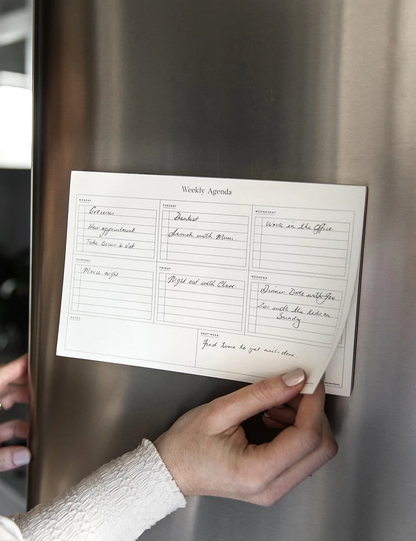 Weekly Agenda
MONDAY
Groceries
Hair appointment
Take Oscar to Vet
TUESDAY
Dentist
Lunch with Mum
WEDNESDAY
Work in the Office
THURSDAY
Movie night
FRIDAY
Night out with Claire
WEEKEND
Dinner Date with Joe
Zoo with the kids on
Sunday
NOTES
NEXT WEEK
Find time to get nails done